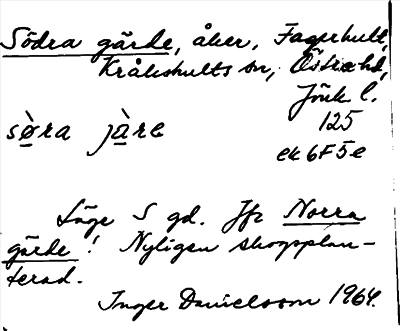 Södra gärde, åker, Fagerhult,
Kråkshults sn, Östra hd,
Jönk. l.
sø̀ra jàre 125
ek 6F5e
Läge S gd. Jfr Norra
gärde! Nyligen skogsplan-
terad.
Inger Danielsson 1964.